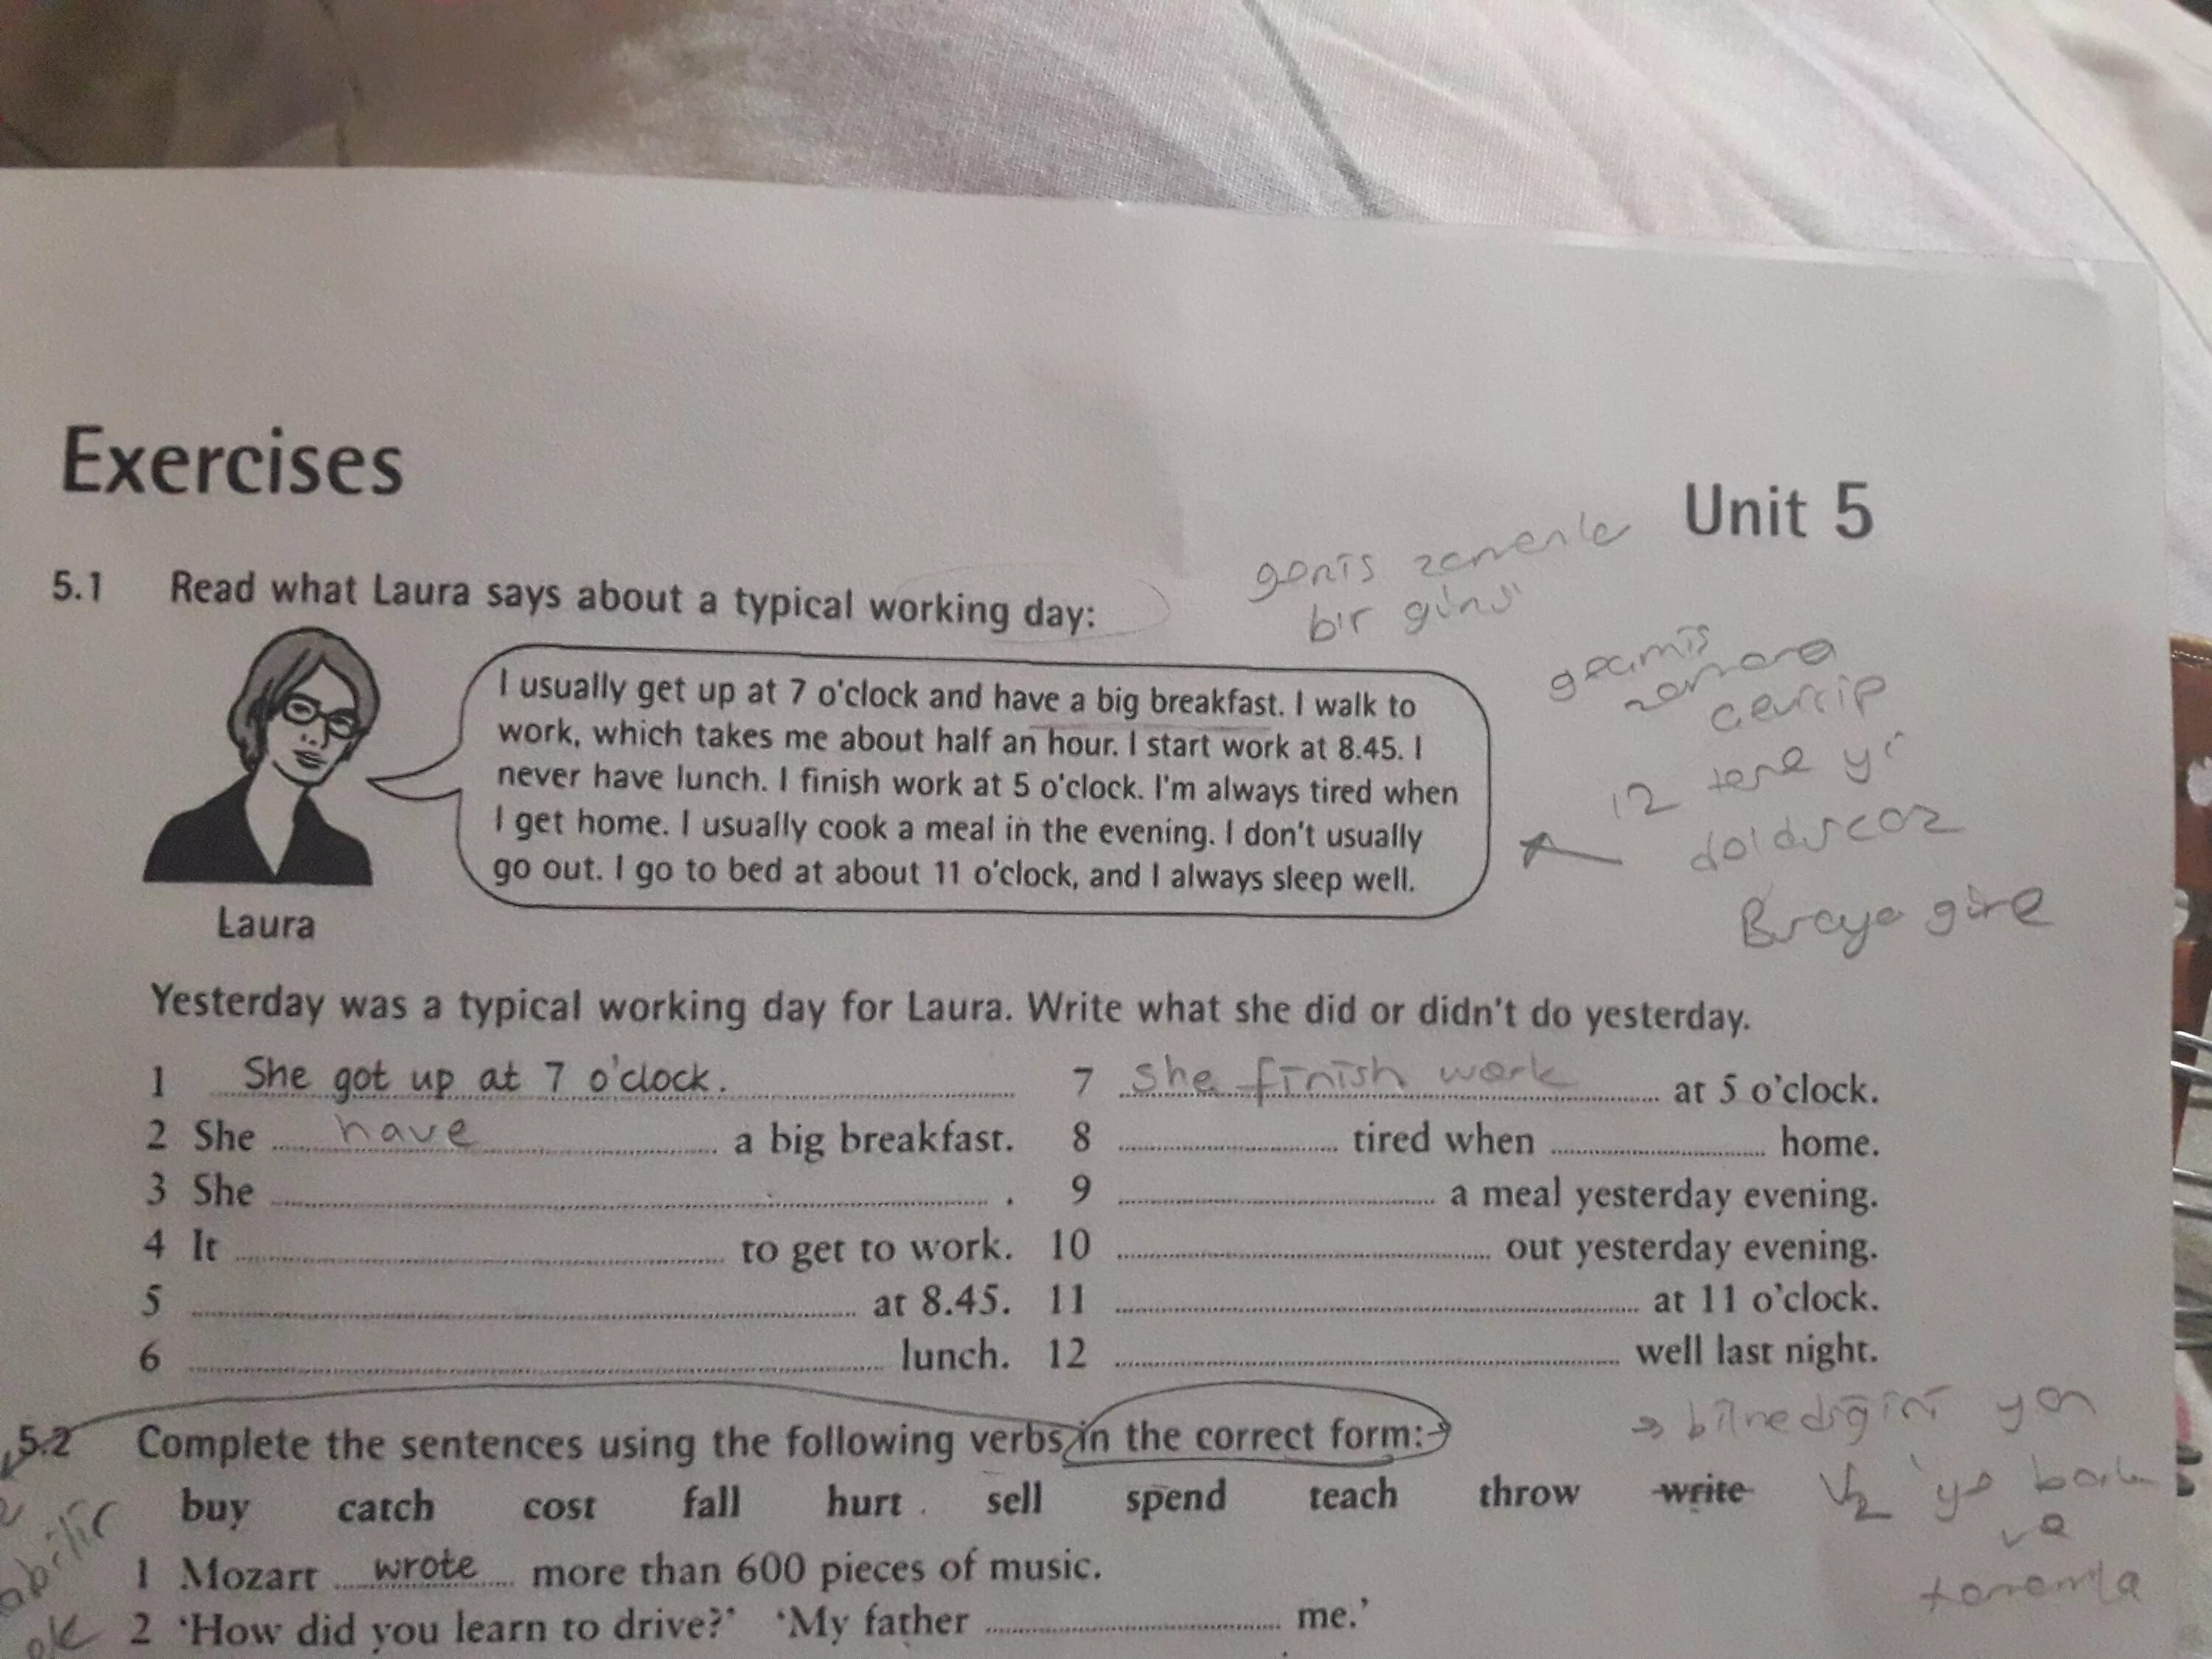 Exercises
Unit 5
geniş zamanla
bir günü
5.1 Read what Laura says about a typical working day:
I usually get up at 7 o'clock and have a big breakfast. I walk to
work, which takes me about half an hour. I start work at 8.45. I
never have lunch. I finish work at 5 o'clock. I'm always tired when
I get home. I usually cook a meal in the evening. I don't usually
go out. I go to bed at about 11 o'clock, and I always sleep well.
Laura
zamana
12 tane yi
Buraya göre
Yesterday was a typical working day for Laura. Write what she did or didn't do yesterday.
1 She got up at 7 o'clock.
2 She have a big breakfast.
3 She .
4 It to get to work.
5 at 8.45.
6 lunch.
7 she finish work at 5 o'clock.
8 tired when home.
9 a meal yesterday evening.
10 out yesterday evening.
11 at 11 o'clock.
12 well last night.
5.2 Complete the sentences using the following verbs in the correct form:
buy catch cost fall hurt sell spend teach throw write
V2 'ye
ve
tamamla
1 Mozart wrote more than 600 pieces of music.
2 'How did you learn to drive?' 'My father me.'